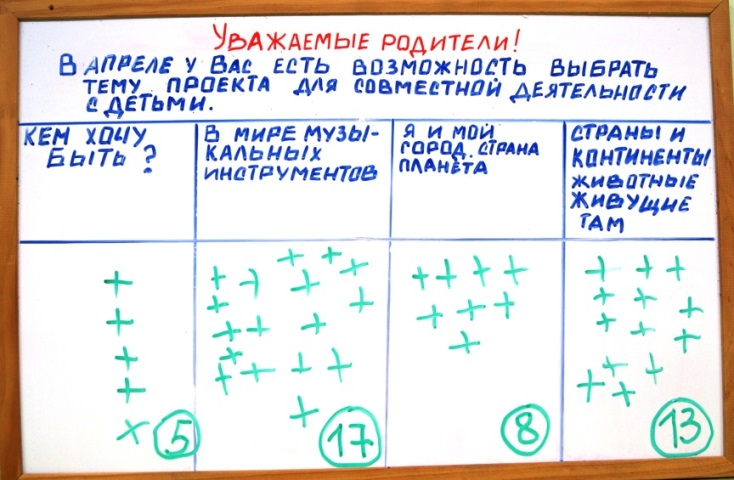 УВАЖАЕМЫЕ РОДИТЕЛИ!
В АПРЕЛЕ У ВАС ЕСТЬ ВОЗМОЖНОСТЬ ВЫБРАТЬ
ТЕМУ ПРОЕКТА ДЛЯ СОВМЕСТНОЙ ДЕЯТЕЛЬНОСТИ
С ДЕТЬМИ.
КЕМ ХОЧУ
БЫТЬ?
В МИРЕ МУЗЫ-
КАЛЬНЫХ
ИНСТРУМЕНТОВ
Я И МОЙ
ГОРОД, СТРАНА
ПЛАНЕТА
СТРАНЫ И
КОНТИНЕНТЫ
ЖИВОТНЫЕ
ЖИВУЩИЕ
ТАМ
5
17
8
13